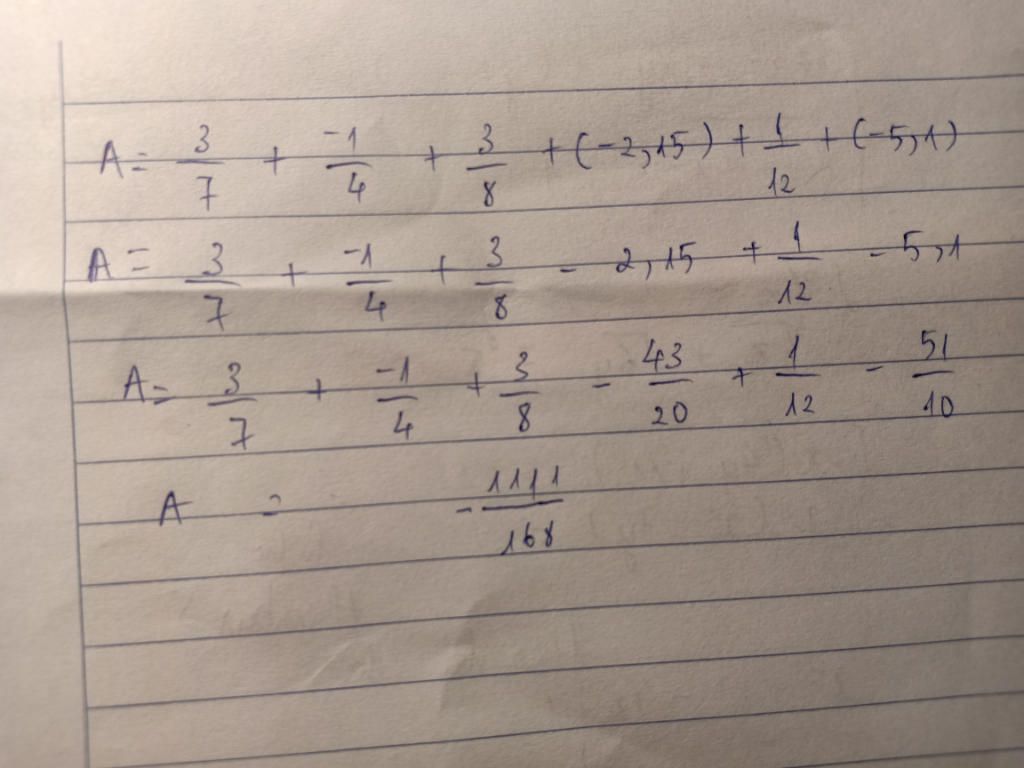 A = 3/7 + -1/4 + 3/8 + (-2,15) + 1/12 + (-5,1)
A = 3/7 + -1/4 + 3/8 - 2,15 + 1/12 - 5,1
A = 3/7 + -1/4 + 3/8 - 43/20 + 1/12 - 51/10
A = - 1111/168